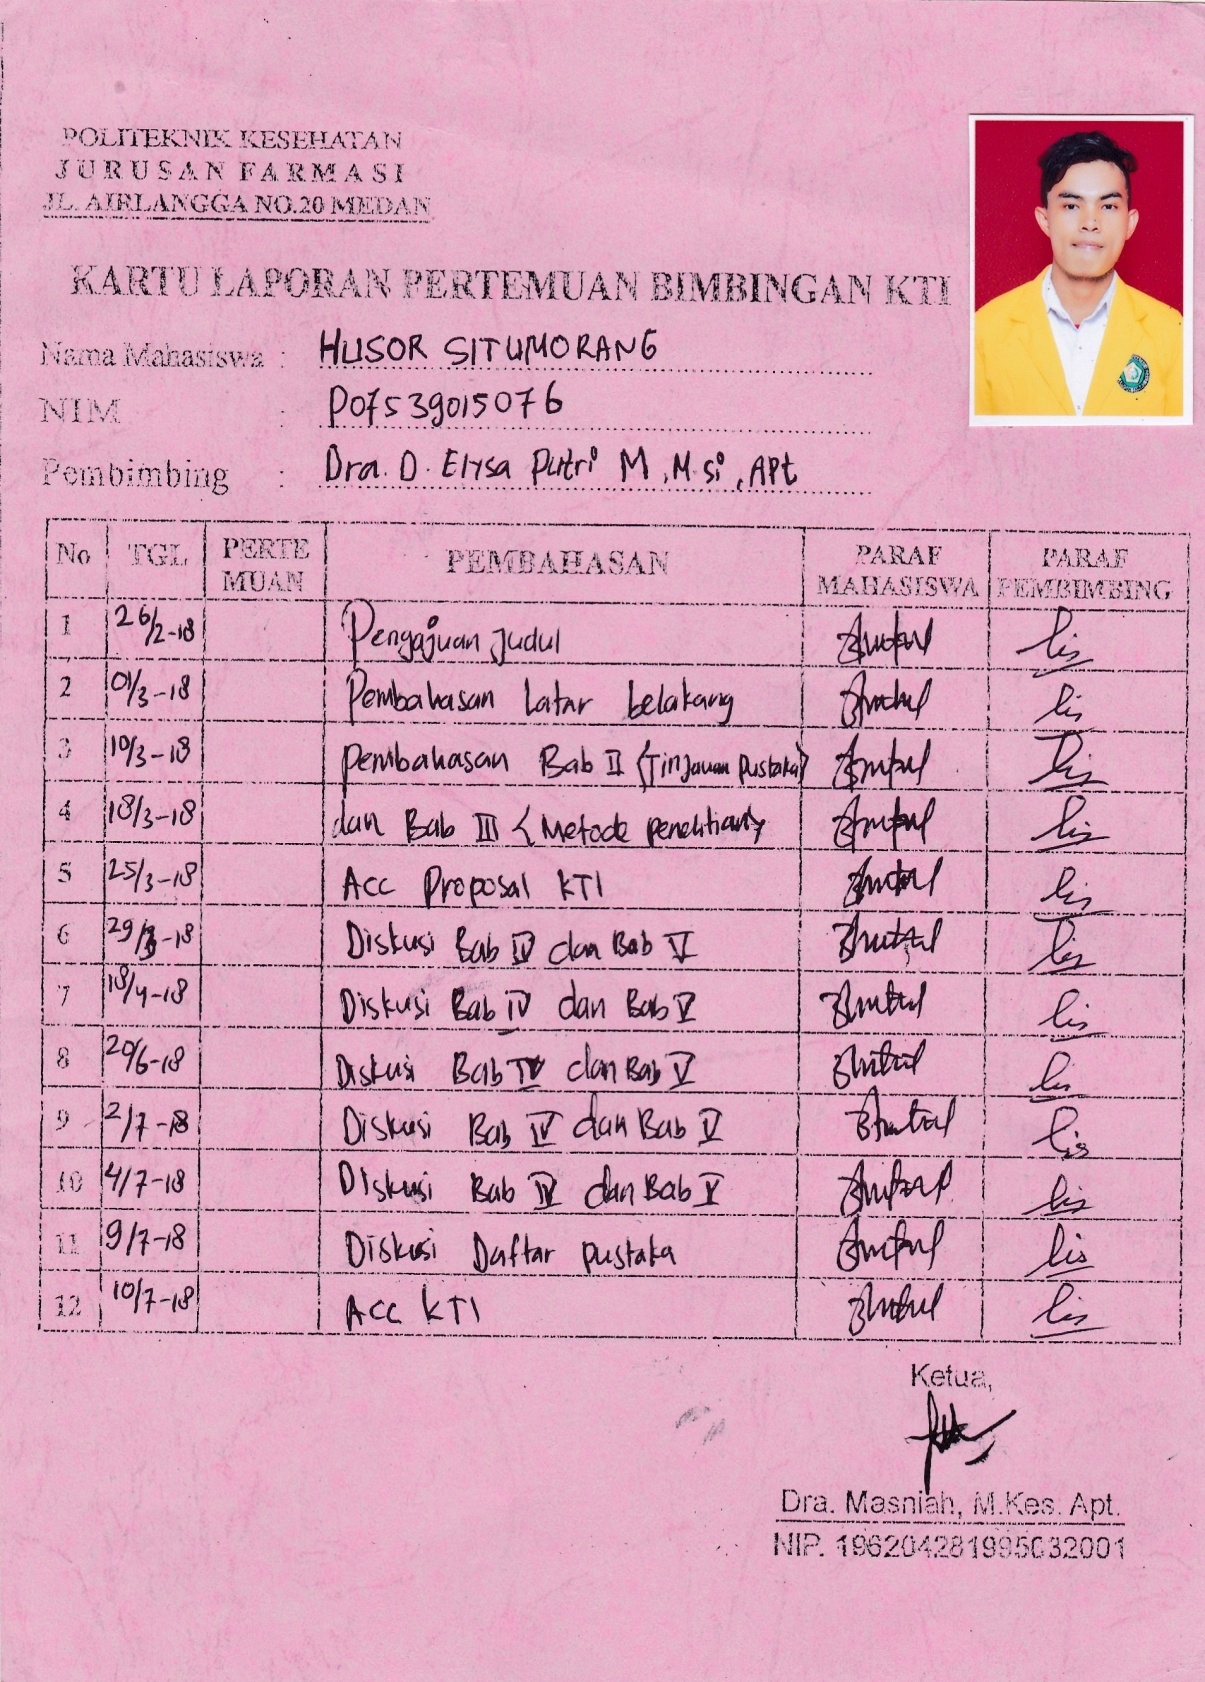 POLITEKNIK KESEHATAN
JURUSAN FARMASI
JL. AIRLANGGA NO.20 MEDAN
KARTU LAPORAN PERTEMUAN BIMBINGAN KTI
Nama Mahasiswa : HUSOR SITUMORANG
NIM : P07539015076
Pembimbing : Dra. D. Elysa Putri M, M.si, Apt
No TGL PERTE MUAN PEMBAHASAN PARAF MAHASISWA PARAF PEMBIMBING
1 26/2-18 Pengajuan Judul lis
2 01/3-18 Pembahasan latar belakang lis
3 10/3-18 pembahasan Bab II (Tinjauan pustaka) lis
4 18/3-18 dan Bab III (Metode penelitian) lis
5 25/3-18 Acc Proposal KTI lis
6 29/3-18 Diskusi Bab IV dan Bab V lis
7 18/4-18 Diskusi Bab IV dan Bab V lis
8 20/6-18 Diskusi Bab IV dan Bab V lis
9 2/7-18 Diskusi Bab IV dan Bab V lis
10 4/7-18 Diskusi Bab IV dan Bab V lis
11 9/7-18 Diskusi Daftar pustaka lis
12 10/7-18 Acc KTI lis
Ketua,
Dra. Masniah, M.Kes. Apt.
NIP. 196204281995032001